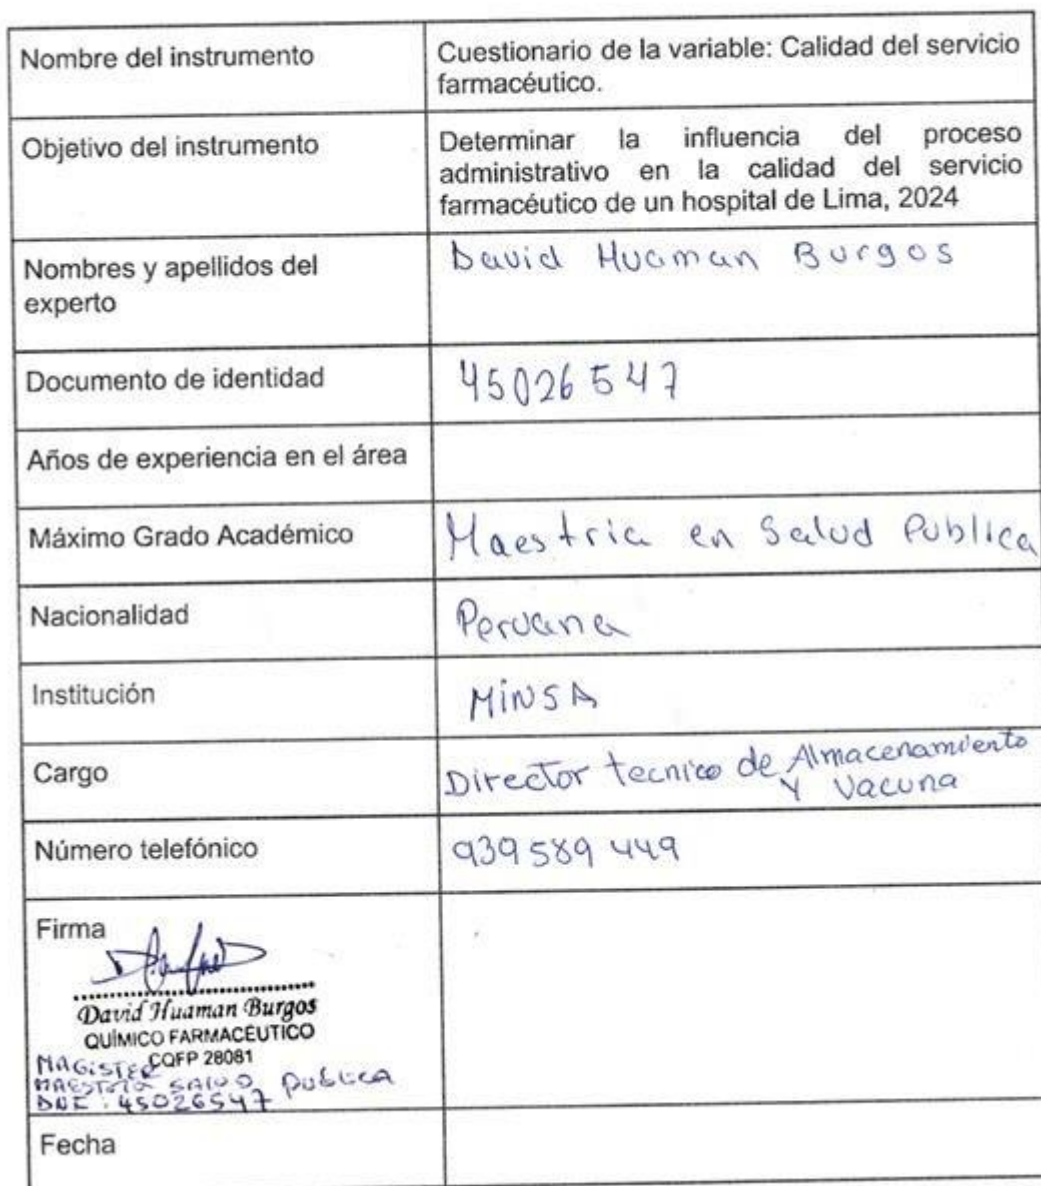 Nombre del instrumento
Cuestionario de la variable: Calidad del servicio
farmacéutico.
Objetivo del instrumento
Determinar la influencia del proceso
administrativo en la calidad del servicio
farmacéutico de un hospital de Lima, 2024
Nombres y apellidos del
experto
David Huaman Burgos
Documento de identidad
45026547
Años de experiencia en el área
Máximo Grado Académico
Maestria en Salud Publica
Nacionalidad
Peruana
Institución
MINSA
Cargo
Director tecnico de Almacenamiento
Y Vacuna
Número telefónico
939 589 449
Firma
David Huaman Burgos
QUÍMICO FARMACÉUTICO
CQFP 28081
MAGISTER
MAESTRIA SALUD PUBLICA
DNI: 45026547
Fecha